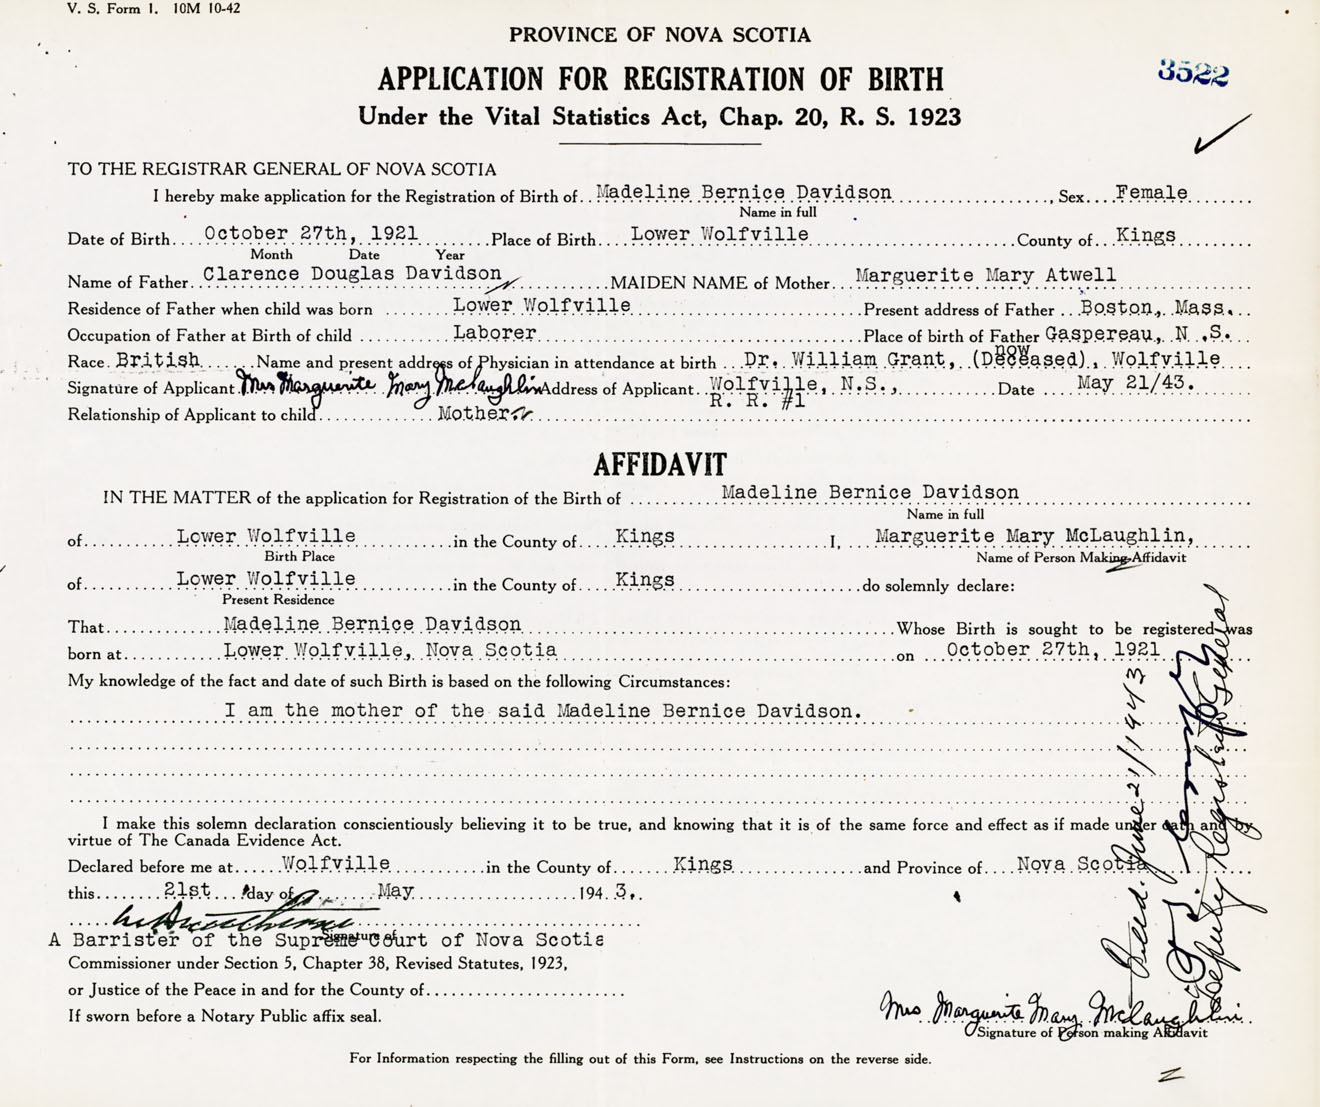 V. S. Form 1. 10M 10-42
PROVINCE OF NOVA SCOTIA
3522
APPLICATION FOR REGISTRATION OF BIRTH
Under the Vital Statistics Act, Chap. 20, R. S. 1923
TO THE REGISTRAR GENERAL OF NOVA SCOTIA
I hereby make application for the Registration of Birth of Madeline Bernice Davidson, Sex Female
Name in full
Date of Birth October 27th, 1921 Place of Birth Lower Wolfville County of Kings
Month Date Year
Name of Father Clarence Douglas Davidson MAIDEN NAME of Mother Marguerite Mary Atwell
Residence of Father when child was born Lower Wolfville Present address of Father Boston, Mass.
Occupation of Father at Birth of child Laborer Place of birth of Father Gaspereau, N .S.
Race British Name and present address of Physician in attendance at birth Dr. William Grant, (now Deceased), Wolfville
Signature of Applicant Mrs Marguerite Mary McLaughlin Address of Applicant Wolfville, N.S., Date May 21/43.
R. R. #1
Relationship of Applicant to child Mother
AFFIDAVIT
IN THE MATTER of the application for Registration of the Birth of Madeline Bernice Davidson
Name in full
of Lower Wolfville in the County of Kings I, Marguerite Mary McLaughlin,
Birth Place Name of Person Making Affidavit
of Lower Wolfville in the County of Kings do solemnly declare:
Present Residence
That Madeline Bernice Davidson Whose Birth is sought to be registered was
born at Lower Wolfville, Nova Scotia on October 27th, 1921
My knowledge of the fact and date of such Birth is based on the following Circumstances:
I am the mother of the said Madeline Bernice Davidson.
I make this solemn declaration conscientiously believing it to be true, and knowing that it is of the same force and effect as if made under oath and by
virtue of The Canada Evidence Act.
Declared before me at Wolfville in the County of Kings and Province of Nova Scotia
this 21st day of May 194 3.
Signature of
A Barrister of the Supreme Court of Nova Scotia
Commissioner under Section 5, Chapter 38, Revised Statutes, 1923,
or Justice of the Peace in and for the County of
If sworn before a Notary Public affix seal.
Mrs Marguerite Mary McLaughlin
Signature of Person making Affidavit
For Information respecting the filling out of this Form, see Instructions on the reverse side.
June 21/1943
Deputy Registrar General